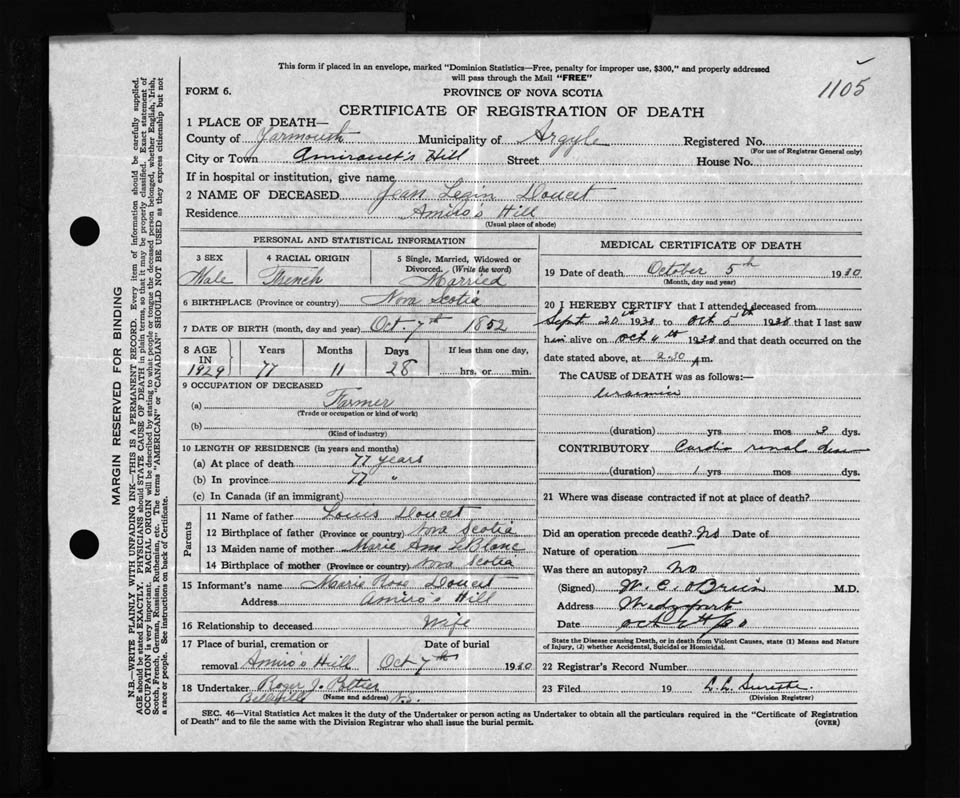 This form if placed in an envelope, marked "Dominion Statistics—Free, penalty for improper use, $300," and properly addressed
will pass through the Mail "FREE"
1105
FORM 6.
PROVINCE OF NOVA SCOTIA
CERTIFICATE OF REGISTRATION OF DEATH
1 PLACE OF DEATH—
County of Yarmouth Municipality of Argyle Registered No.
(For use of Registrar General only)
City or Town Hill Street House No.
If in hospital or institution, give name
2 NAME OF DECEASED Jean Doucet
Residence Amiro's Hill
(Usual place of abode)
PERSONAL AND STATISTICAL INFORMATION
3 SEX Male
4 RACIAL ORIGIN French
5 Single, Married, Widowed or Divorced. (Write the word) Married
6 BIRTHPLACE (Province or country) Nova Scotia
7 DATE OF BIRTH (month, day and year) Oct. 7th 1852
8 AGE IN 1929 Years 77 Months 11 Days 28 If less than one day, hrs. or min.
9 OCCUPATION OF DECEASED
(a) Farmer
(Trade or occupation or kind of work)
(b)
(Kind of industry)
10 LENGTH OF RESIDENCE (in years and months)
(a) At place of death 77 years
(b) In province 77 "
(c) In Canada (if an immigrant)
Parents
11 Name of father Louis Doucet
12 Birthplace of father (Province or country) Nova Scotia
13 Maiden name of mother Marie Ann LeBlanc
14 Birthplace of mother (Province or country) Nova Scotia
15 Informant's name Marie Rose Doucet
Address Amiro's Hill
16 Relationship to deceased Wife
17 Place of burial, cremation or removal Amiro's Hill
Date of burial Oct 7th 1930
18 Undertaker Roger J. Pottier
Belleville (Name and address) N.S.
MEDICAL CERTIFICATE OF DEATH
19 Date of death October 5th 1930
(Month, day and year)
20 I HEREBY CERTIFY that I attended deceased from
Sept 20th 1930 to Oct 5th 1930 that I last saw
him alive on Oct 4th 1930 and that death occurred on the
date stated above, at 2.30 Am.
The CAUSE of DEATH was as follows:—
Uraemia
(duration) yrs. mos 3 dys.
CONTRIBUTORY Cardio renal
(duration) 1 yrs mos dys.
21 Where was disease contracted if not at place of death?
Did an operation precede death? No Date of
Nature of operation —
Was there an autopsy? No
(Signed) W. C. O'Brien M.D.
Address Wedgeport
Date Oct
State the Disease causing Death, or in death from Violent Causes, state (1) Means and Nature
of Injury, (2) whether Accidental, Suicidal or Homicidal.
22 Registrar's Record Number
23 Filed 19 L. L. Surette
(Division Registrar)
SEC. 46—Vital Statistics Act makes it the duty of the Undertaker or person acting as Undertaker to obtain all the particulars required in the "Certificate of Registration
of Death" and to file the same with the Division Registrar who shall issue the burial permit.
(OVER)
MARGIN RESERVED FOR BINDING
N.B.—WRITE PLAINLY WITH UNFADING INK—THIS IS A PERMANENT RECORD. Every item of information should be carefully supplied.
AGE should be stated EXACTLY. PHYSICIANS should STATE CAUSE OF DEATH in plain terms, so that it may be properly classified. Exact statement of
OCCUPATION is very important. RACIAL ORIGIN will be described by stating to what people or tongue the deceased person belonged, whether English, Irish,
Scotch, French, German, Russian, Ruthenian, etc. The terms "AMERICAN" or "CANADIAN" SHOULD NOT BE USED as they express citizenship but not
a race or people. See instructions on back of Certificate.